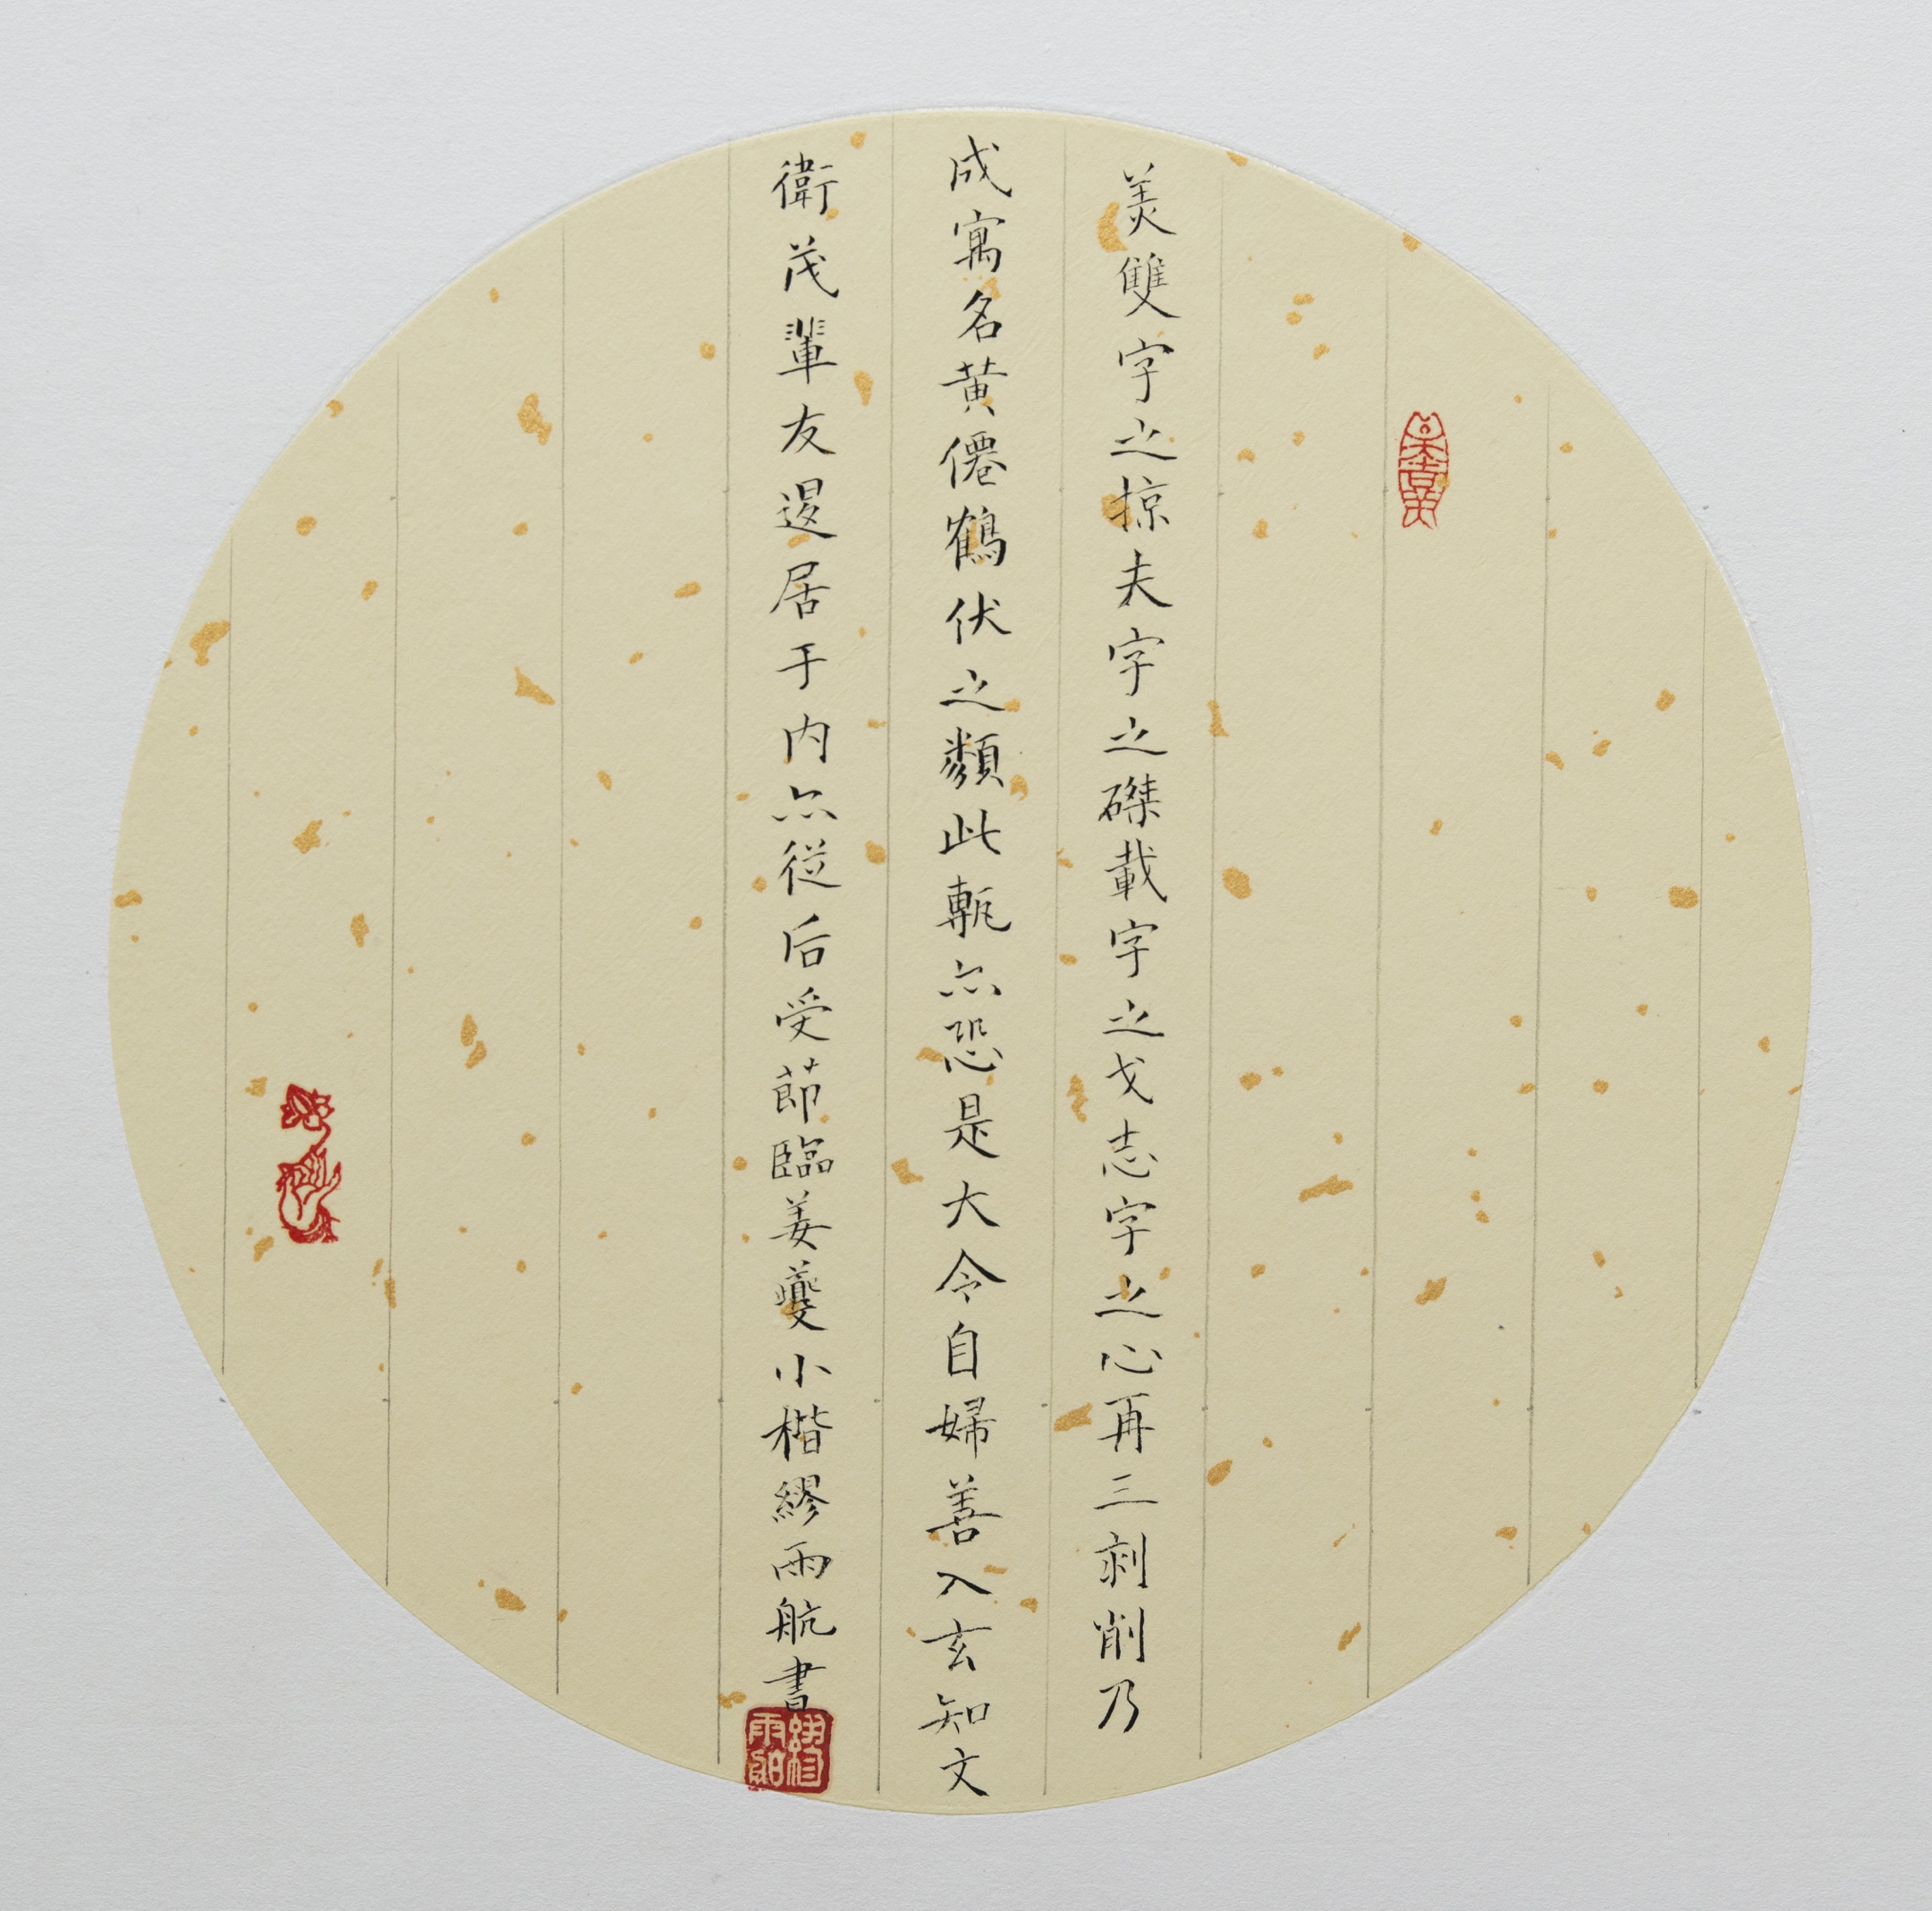 美雙字之掠夫字之磔載字之戈志字之心再三刻削乃
成寓名黃僊鶴伏之類此甎亦恐是大令自婦善入玄知文
衛茂輩友還居于內亦從后受莭臨姜夔小楷繆雨航書
繆雨航